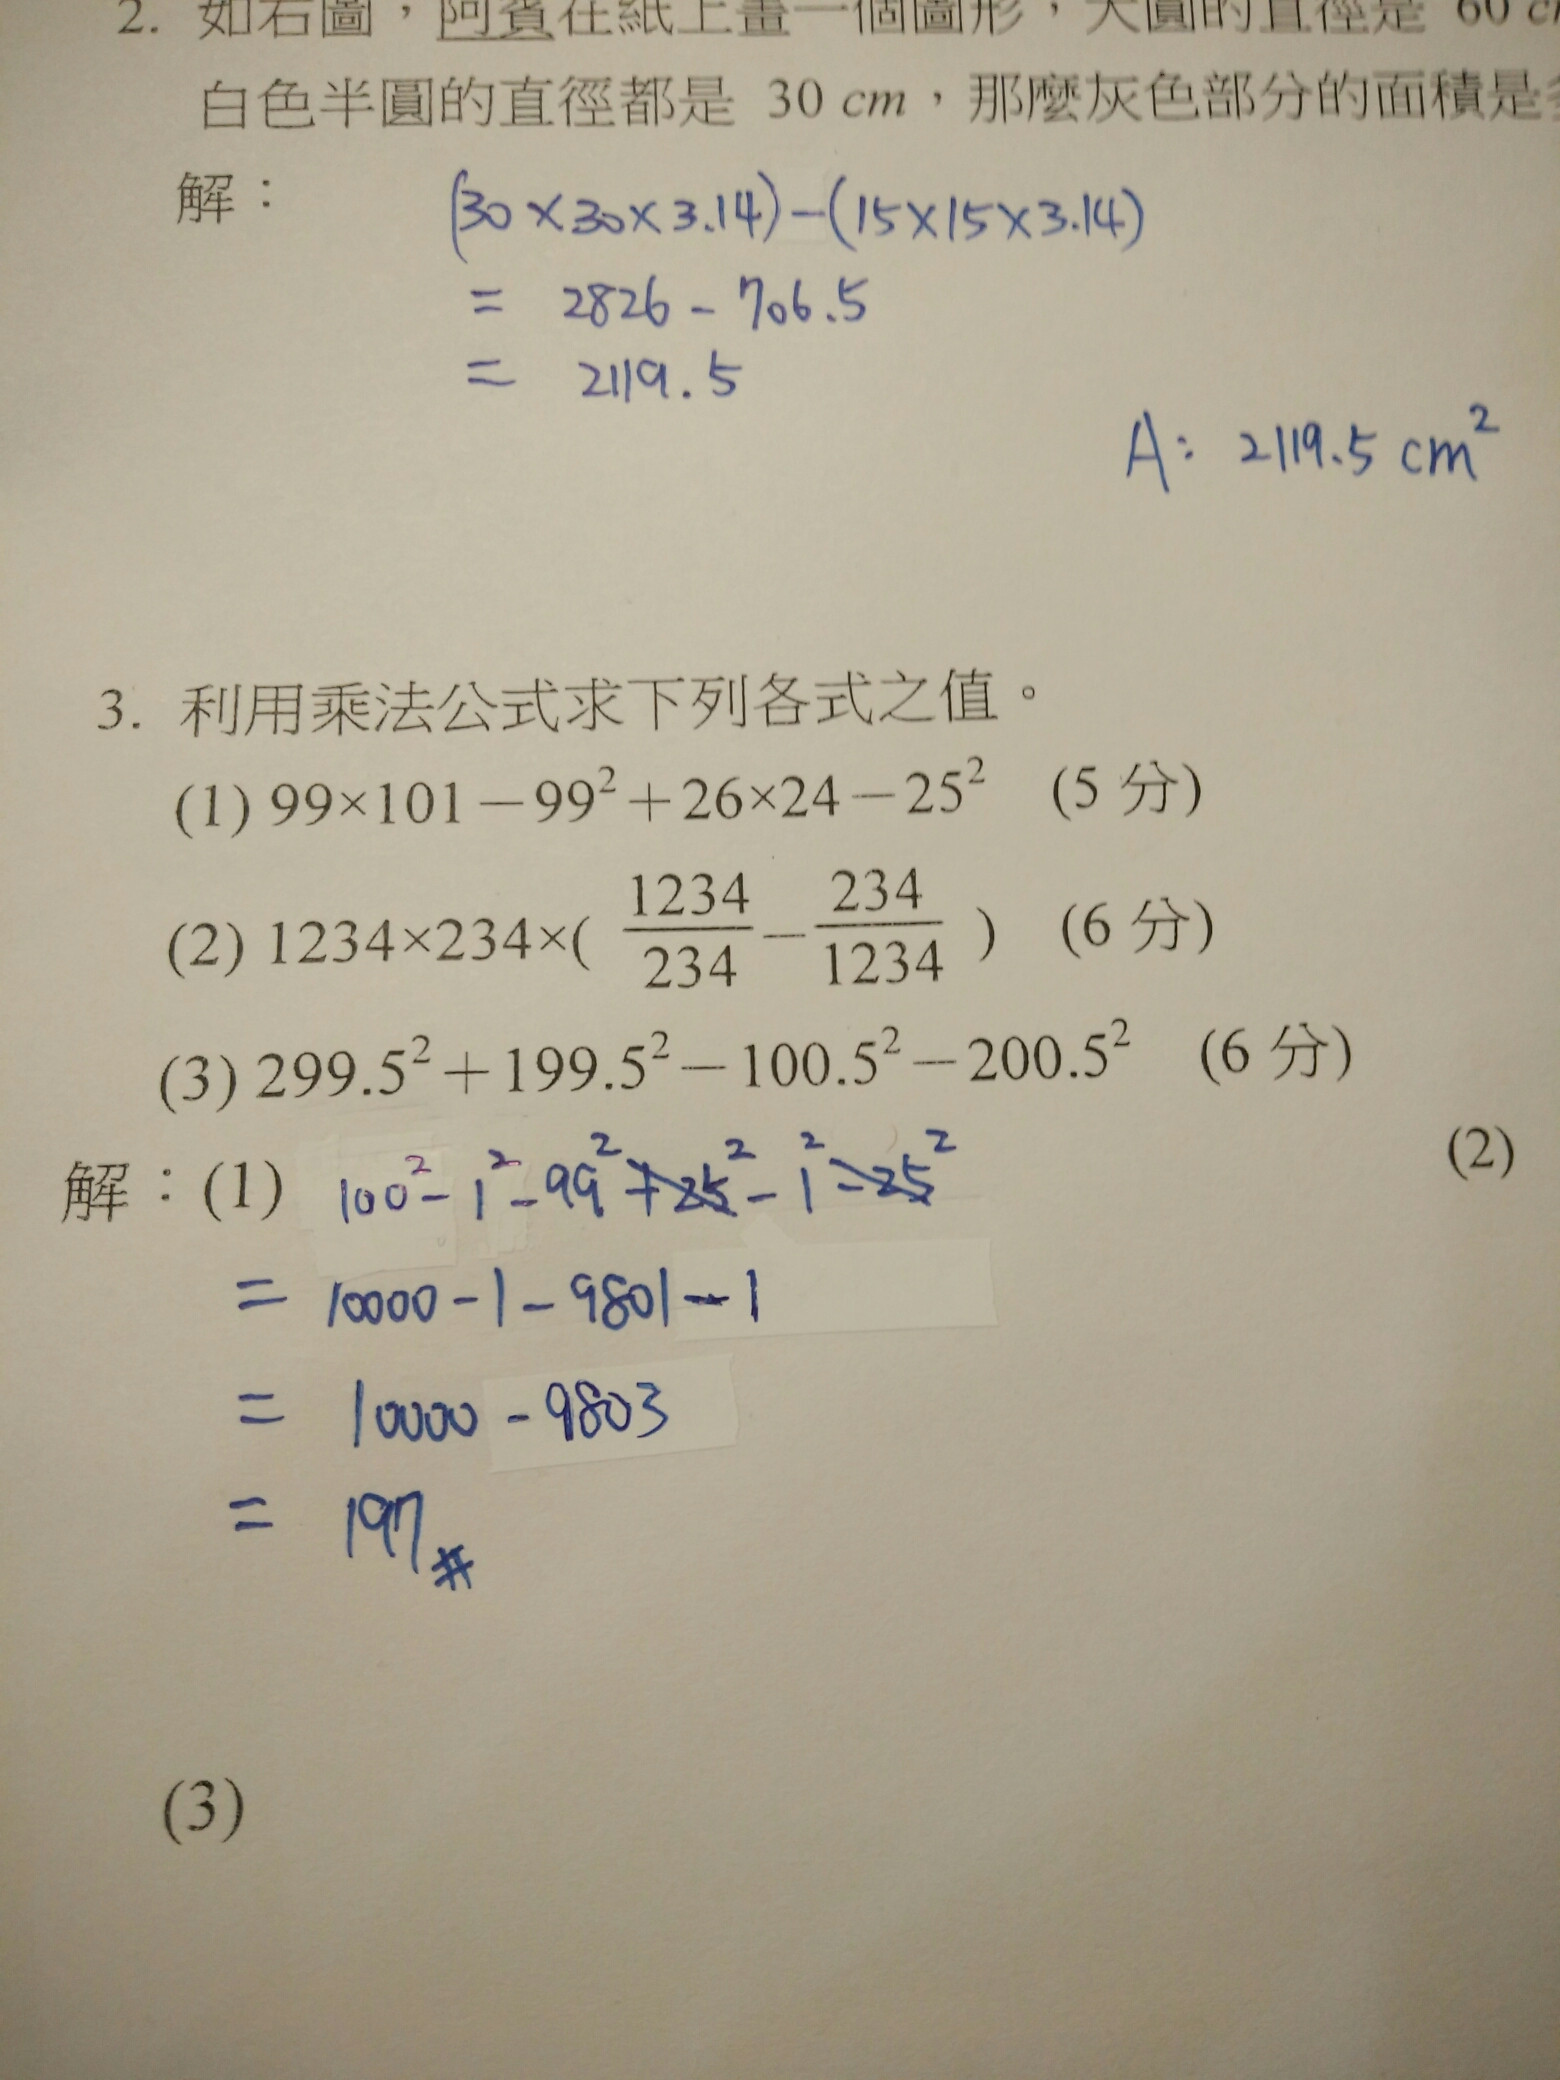 2. 如右圖，阿賓在紙上畫一個圖形，大圓的直徑是 60 c
白色半圓的直徑都是 30 cm，那麼灰色部分的面積是
解：
(30×30×3.14)-(15×15×3.14)
= 2826 - 706.5
= 2119.5
A: 2119.5 cm²
3. 利用乘法公式求下列各式之值。
(1) 99×101－99²＋26×24－25² (5 分)
(2) 1234×234×( 1234/234 － 234/1234 ) (6 分)
(3) 299.5²＋199.5²－100.5²－200.5² (6 分)
解：(1) 100² - 1² - 99² + 25² - 1² - 25² (2)
= 10000 - 1 - 9801 - 1
= 10000 - 9803
= 197#
(3)